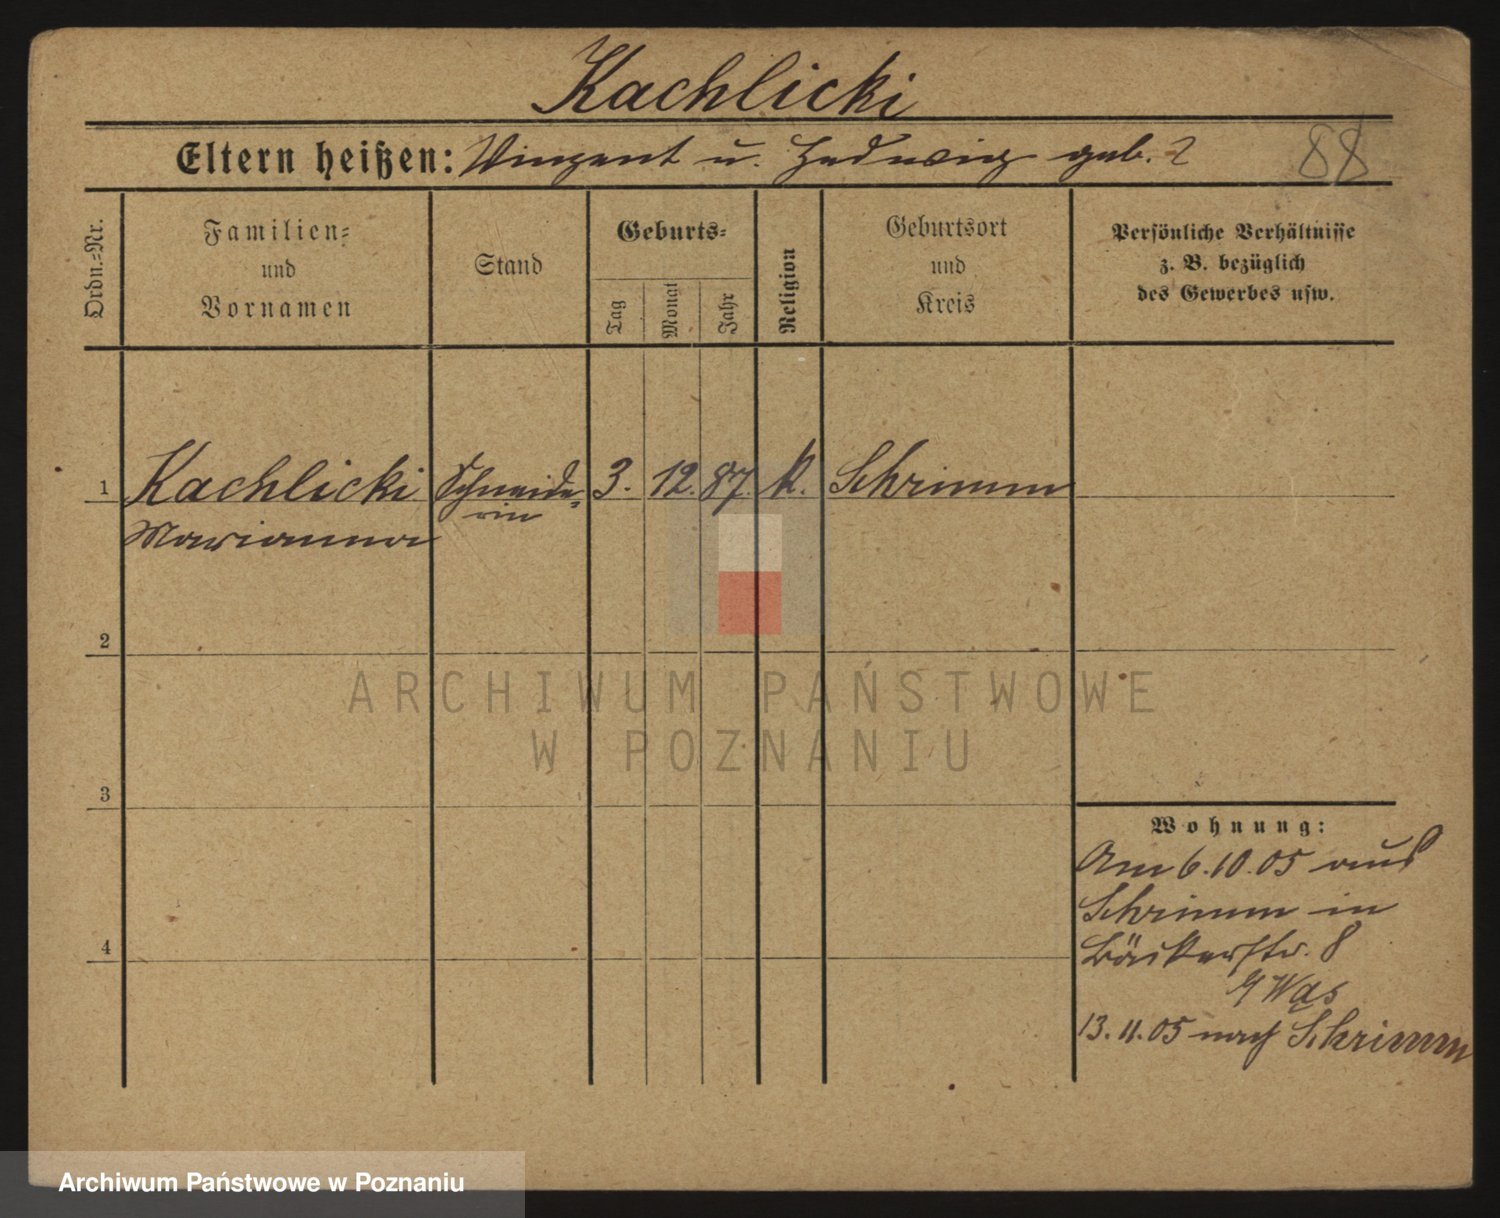 Kachlicki
Eltern heißen: Vinzent u. Hedwig geb. ?
88
Ordn.-Nr.
Familien-
und
Vornamen
Stand
Geburts-
Tag
Monat
Jahr
Religion
Geburtsort
und
Kreis
Persönliche Verhältnisse
z. B. bezüglich
des Gewerbes usw.
1
Kachlicki
Marianna
Schneide-
rin
3.
12.
87.
k.
Schrimm
2
3
4
Wohnung:
Am 6.10.05 aus
Schrimm in
Bäckerstr. 8
Wąs
13.11.05 nach Schrimm
ARCHIWUM PAŃSTWOWE
W POZNANIU
Archiwum Państwowe w Poznaniu